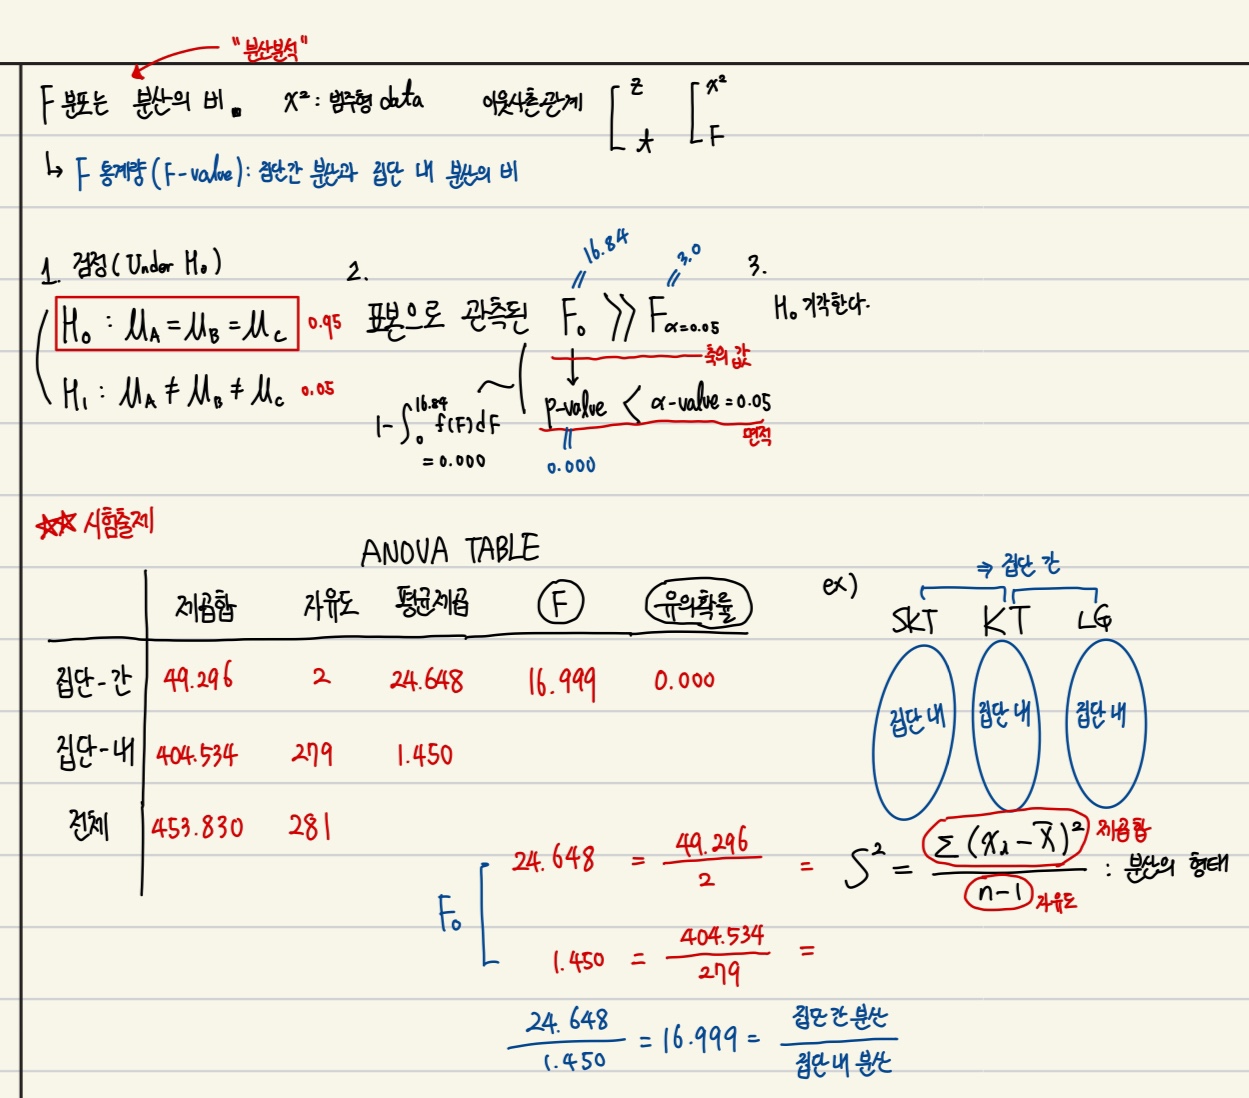 "분산분석"
F 분포는 분산의 비. χ² : 범주형 data 이웃사촌관계 [ z t [ χ² F
↳ F 통계량(F-value) : 집단간 분산과 집단 내 분산의 비
1. 검정(Under H₀)
H₀ : μA = μB = μC 0.95
H₁ : μA ≠ μB ≠ μC 0.05
2.
16.84 3.0
표본으로 관측된 F₀ ≫ Fα=0.05
축의 값
p-value < α-value = 0.05
면적
0.000
1-∫₀^16.84 f(F)dF
= 0.000
3.
H₀ 기각한다.
☆☆ 시험출제
ANOVA TABLE
제곱합 자유도 평균제곱 F 유의확률
집단-간 49.296 2 24.648 16.999 0.000
집단-내 404.534 279 1.450
전체 453.830 281
ex)
⇒ 집단 간
SKT KT LG
집단 내 집단 내 집단 내
F₀ [ 24.648 = 49.296 / 2 = S² = Σ(xi - x̄)² / n-1 : 분산의 형태
제곱합
자유도
1.450 = 404.534 / 279 =
24.648 / 1.450 = 16.999 = 집단간 분산 / 집단내 분산